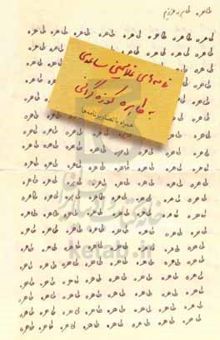 طاهره طاهره عزیزم
طاهره طاهره طاهره طاهره طاهره طاهره طاهره
طاهره طاهره طاهره طاهره طاهره طاهره طاهره
نامه‌های غلامحسین ساعدی
به طاهره کوزه‌گرانی
همراه با تصاویر نامه‌ها
طاهره طاهره طاهره طاهره طاهره طاهره طاهره
طاهره طاهره طاهره طاهره طاهره طاهره طاهره
طاهره طاهره طاهره طاهره طاهره طاهره طاهره
طاهره طاهره طاهره طاهره طاهره طاهره طاهره
طاهره طاهره طاهره طاهره طاهره طاهره طاهره
طاهره طاهره طاهره طاهره طاهره طاهره طاهره
طاهره طاهره طاهره طاهره طاهره طاهره طاهره
طاهره طاهره طاهره طاهره طاهره طاهره طاهره
ketab.ir